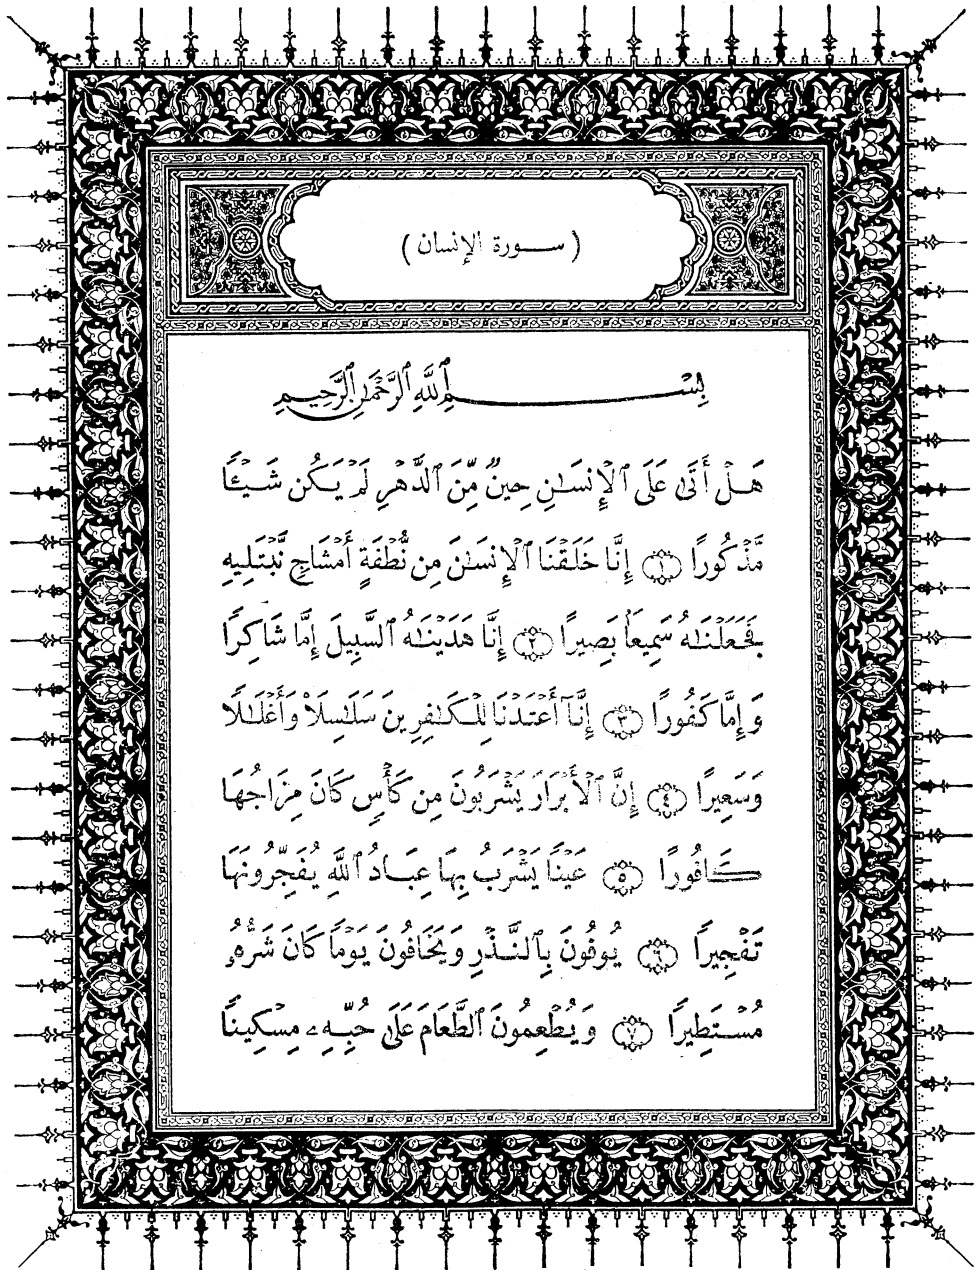 (سورة الإنسان)
بِسْمِ ٱللَّهِ ٱلرَّحْمَٰنِ ٱلرَّحِيمِ
هَلْ أَتَىٰ عَلَى ٱلْإِنسَٰنِ حِينٌ مِّنَ ٱلدَّهْرِ لَمْ يَكُن شَيْـًٔا
مَّذْكُورًا ۝١ إِنَّا خَلَقْنَا ٱلْإِنسَٰنَ مِن نُّطْفَةٍ أَمْشَاجٍ نَّبْتَلِيهِ
فَجَعَلْنَٰهُ سَمِيعًا بَصِيرًا ۝٢ إِنَّا هَدَيْنَٰهُ ٱلسَّبِيلَ إِمَّا شَاكِرًا
وَإِمَّا كَفُورًا ۝٣ إِنَّآ أَعْتَدْنَا لِلْكَٰفِرِينَ سَلَٰسِلَا۟ وَأَغْلَٰلًا
وَسَعِيرًا ۝٤ إِنَّ ٱلْأَبْرَارَ يَشْرَبُونَ مِن كَأْسٍ كَانَ مِزَاجُهَا
كَافُورًا ۝٥ عَيْنًا يَشْرَبُ بِهَا عِبَادُ ٱللَّهِ يُفَجِّرُونَهَا
تَفْجِيرًا ۝٦ يُوفُونَ بِٱلنَّذْرِ وَيَخَافُونَ يَوْمًا كَانَ شَرُّهُۥ
مُسْتَطِيرًا ۝٧ وَيُطْعِمُونَ ٱلطَّعَامَ عَلَىٰ حُبِّهِۦ مِسْكِينًا